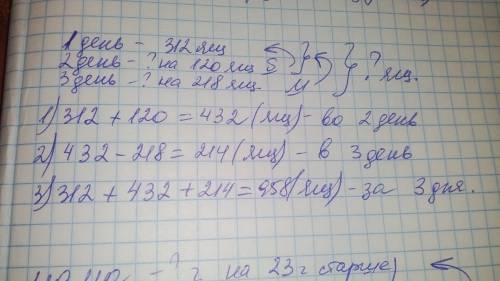 1 день - 312 ящ
2 день - ? на 120 ящ Б } ? ящ.
3 день - ? на 218 ящ. М
1) 312 + 120 = 432 (ящ) - во 2 день
2) 432 - 218 = 214 (ящ) - в 3 день
3) 312 + 432 + 214 = 958 (ящ) - за 3 дня.
- ? г на 23 г старше